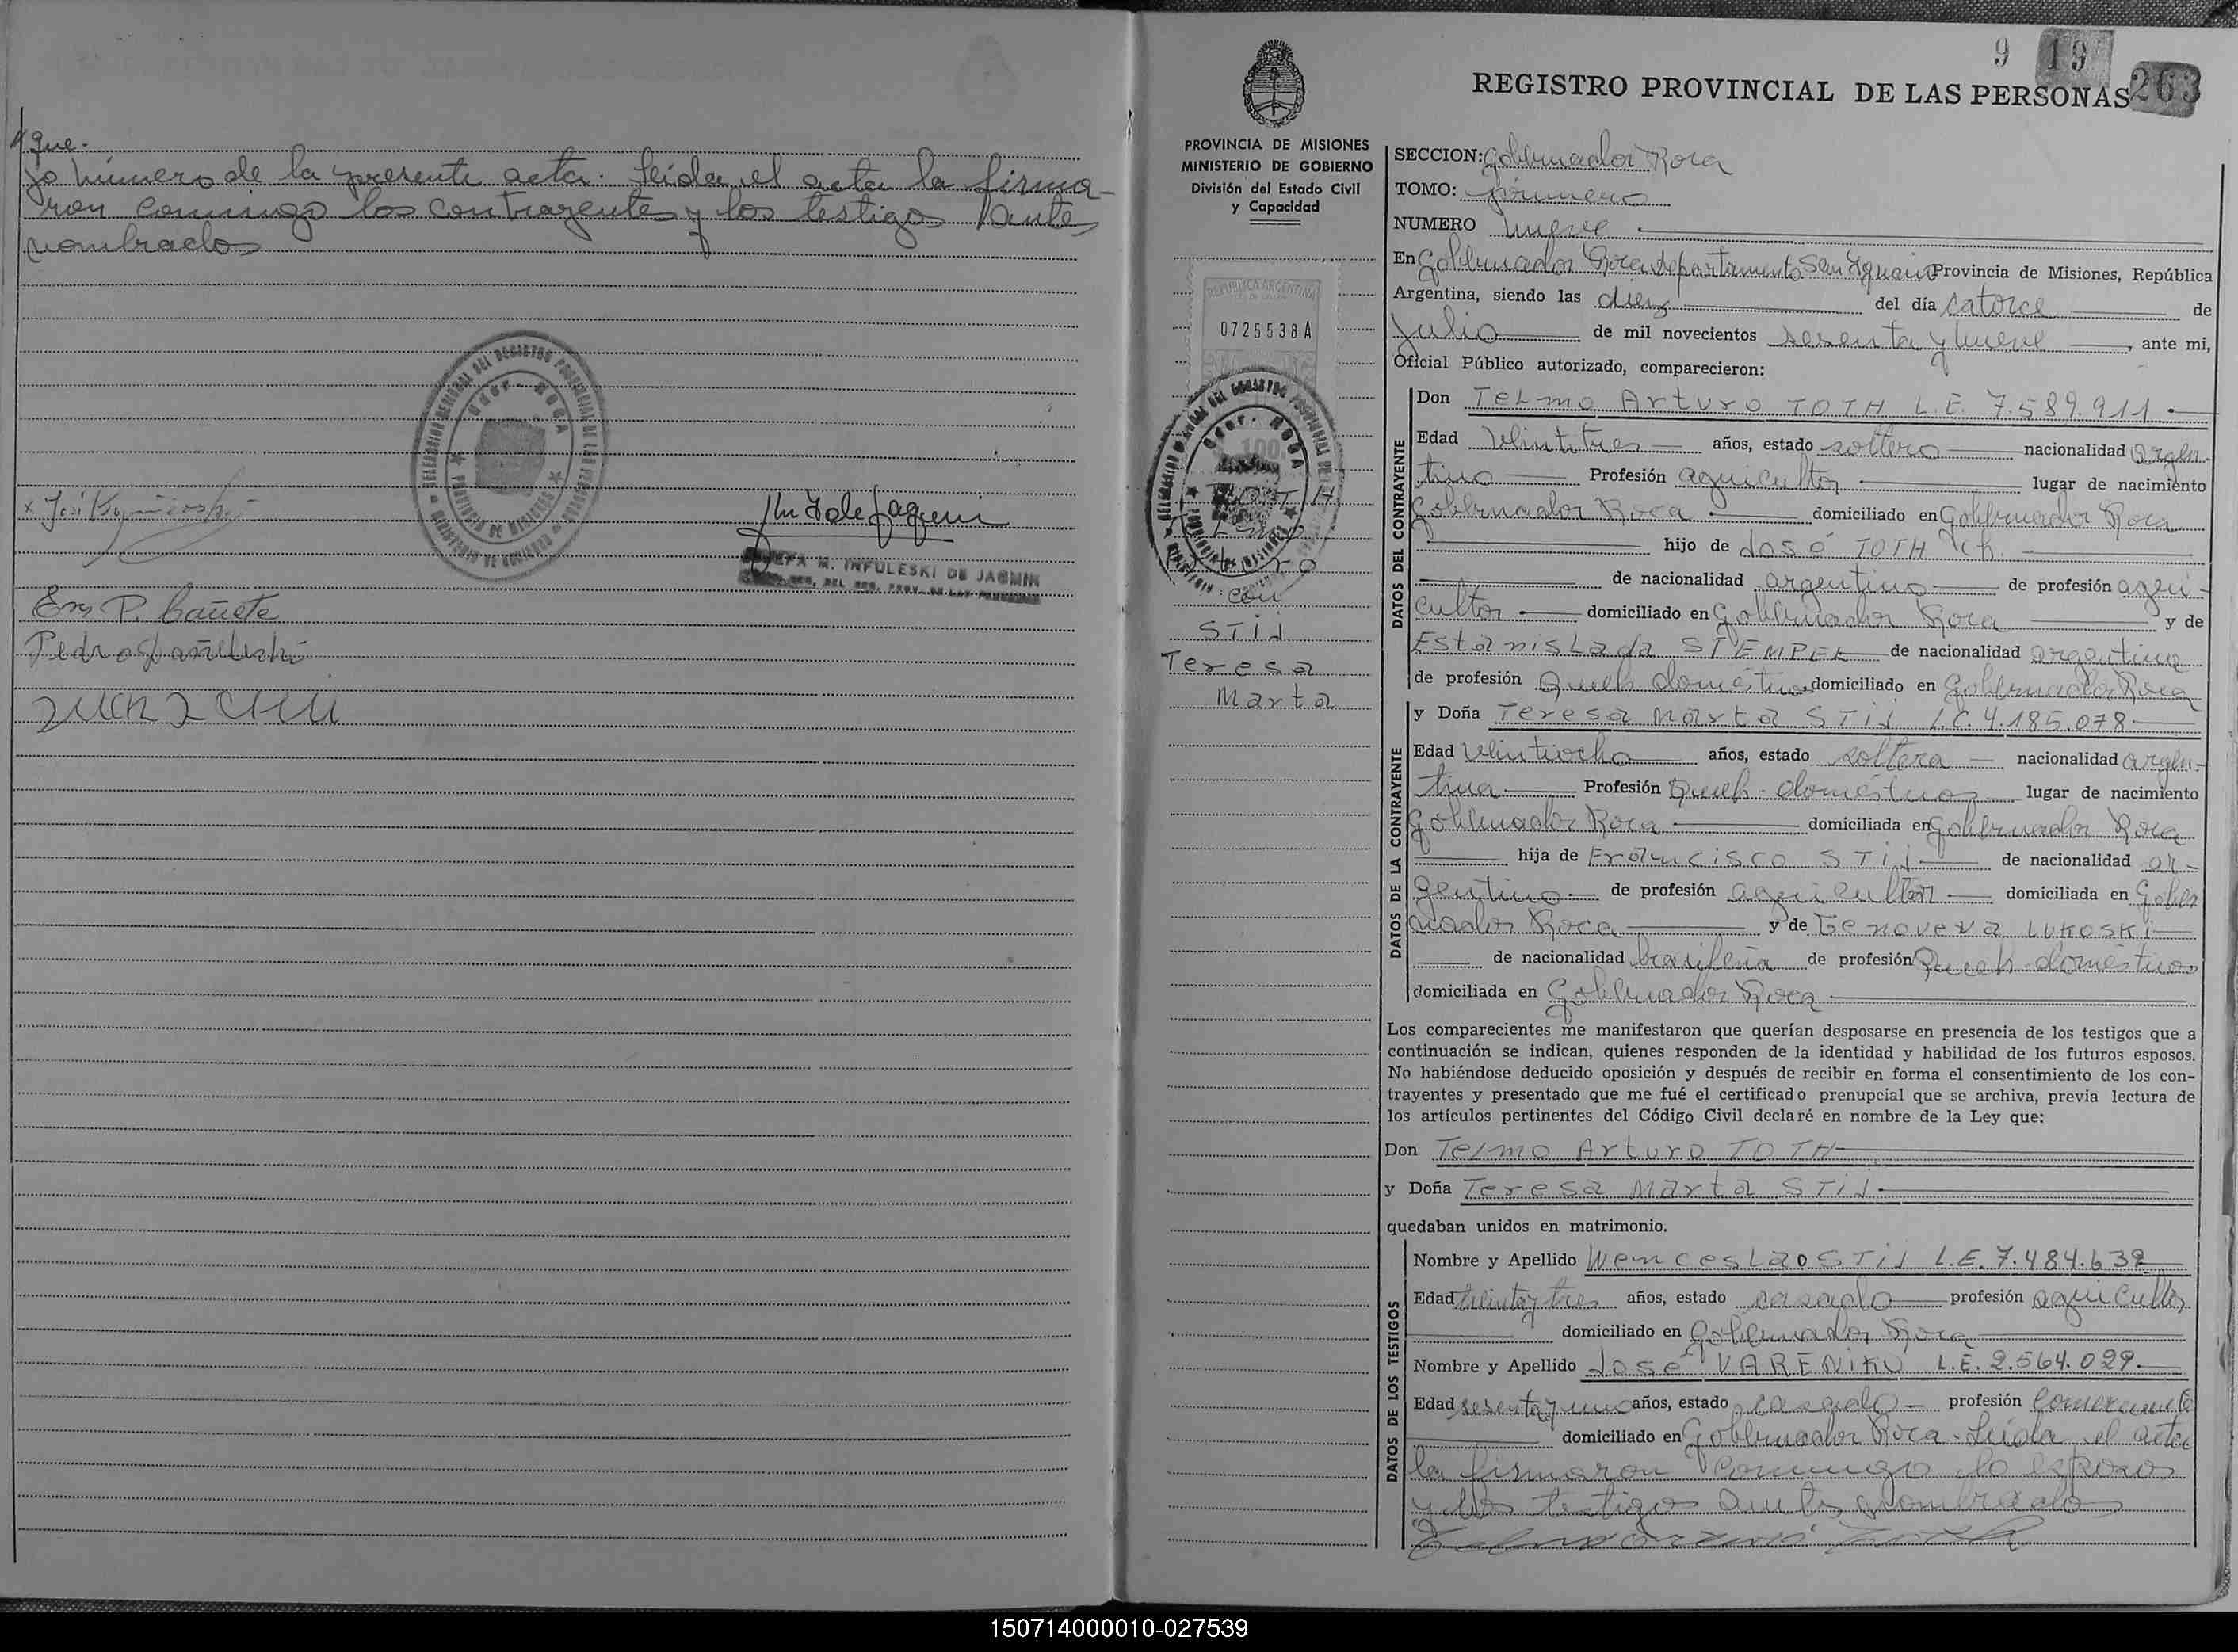 que.
jo número de la presente acta. Leida el acta la firma-
ron conmigo los contrayentes y los testigos antes
nombrados
DELEGACION SECCIONAL DEL REGISTRO PROVINCIAL DE LAS PERSONAS
Gdor. ROCA
PROVINCIA DE MISIONES
M. INFULESKI DE JAGMIN
P. Cañete
Pedro
9 19 203
REGISTRO PROVINCIAL DE LAS PERSONAS
PROVINCIA DE MISIONES
MINISTERIO DE GOBIERNO
División del Estado Civil
y Capacidad
REPUBLICA ARGENTINA
0725538A
100
TOTH
Telmo
Arturo
con
STIJ
Teresa
Marta
SECCION: Gobernador Roca
TOMO: primero
NUMERO nueve
En Gobernador Roca departamento San Ignacio Provincia de Misiones, República
Argentina, siendo las diez del día catorce de
Julio de mil novecientos sesenta y nueve, ante mi,
Oficial Público autorizado, comparecieron:
DATOS DEL CONTRAYENTE
Don Telmo Arturo TOTH L.E. 7.589.911.
Edad veintitres años, estado soltero nacionalidad argen-
tino Profesión agricultor lugar de nacimiento
Gobernador Roca domiciliado en Gobernador Roca
hijo de José TOTH
de nacionalidad argentino de profesión agri-
cultor domiciliado en Gobernador Roca y de
Estanislada STEMPEK de nacionalidad argentina
de profesión Queh. domésticos, domiciliado en Gobernador Roca
DATOS DE LA CONTRAYENTE
y Doña Teresa Marta STIJ L.C. 4.185.078
Edad veintiocho años, estado soltera nacionalidad argen-
tina Profesión Queh. domésticos lugar de nacimiento
Gobernador Roca domiciliada en Gobernador Roca
hija de Francisco STIJ de nacionalidad ar-
gentino de profesión agricultor domiciliada en Gober
nador Roca y de Genoveva LUKOSKI
de nacionalidad brasileña de profesión Queh. domésticos
domiciliada en Gobernador Roca
Los comparecientes me manifestaron que querían desposarse en presencia de los testigos que a
continuación se indican, quienes responden de la identidad y habilidad de los futuros esposos.
No habiéndose deducido oposición y después de recibir en forma el consentimiento de los con-
trayentes y presentado que me fué el certificado prenupcial que se archiva, previa lectura de
los artículos pertinentes del Código Civil declaré en nombre de la Ley que:
Don Telmo Arturo TOTH
y Doña Teresa Marta STIJ
quedaban unidos en matrimonio.
DATOS DE LOS TESTIGOS
Nombre y Apellido Wenceslao STIJ L.E. 7.484.632
Edad treinta y tres años, estado casado profesión agricultor
domiciliado en Gobernador Roca
Nombre y Apellido José VARENIKO L.E. 2.564.029.
Edad sesenta y uno años, estado casado profesión comerciante
domiciliado en Gobernador Roca. Leida el acta
la firmaron conmigo lo esposos
y los testigos antes nombrados
Telmo Arturo Toth
150714000010-027539